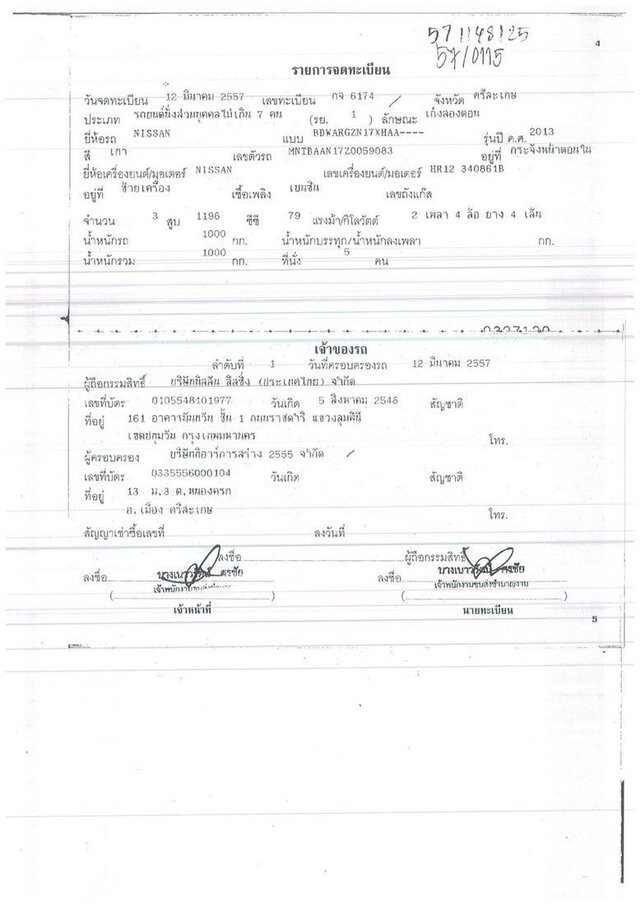 571148125
57/0115
4
รายการจดทะเบียน
วันจดทะเบียน 12 มีนาคม 2557 เลขทะเบียน กจ 6174 จังหวัด ศรีสะเกษ
ประเภท รถยนต์นั่งส่วนบุคคลไม่เกิน 7 คน (รย. 1 ) ลักษณะ เก๋งสองตอน
ยี่ห้อรถ NISSAN แบบ BDWARGZN17XHAA---- รุ่นปี ค.ศ. 2013
สี เทา เลขตัวรถ MNTBAAN17Z0059083 อยู่ที่ กระจังหน้าตอนใน
ยี่ห้อเครื่องยนต์/มอเตอร์ NISSAN เลขเครื่องยนต์/มอเตอร์ HR12 340861B
อยู่ที่ ซ้ายเครื่อง เชื้อเพลิง เบนซิน เลขถังแก๊ส
จำนวน 3 สูบ 1196 ซีซี 79 แรงม้า/กิโลวัตต์ 2 เพลา 4 ล้อ ยาง 4 เส้น
น้ำหนักรถ 1000 กก. น้ำหนักบรรทุก/น้ำหนักลงเพลา กก.
น้ำหนักรวม 1000 กก. ที่นั่ง 5 คน
เจ้าของรถ
ลำดับที่ 1 วันที่ครอบครองรถ 12 มีนาคม 2557
ผู้ถือกรรมสิทธิ์ บริษัททิสโก้ ลีสซิ่ง (ประเทศไทย) จำกัด
เลขที่บัตร 0105548101977 วันเกิด 5 สิงหาคม 2548 สัญชาติ
ที่อยู่ 161 อาคารนันทวัน ชั้น 1 ถนนราชดำริ แขวงลุมพินี
เขตปทุมวัน กรุงเทพมหานคร โทร.
ผู้ครอบครอง บริษัทกีอาร์การสร่าง 2555 จำกัด
เลขที่บัตร 0335556000104 วันเกิด สัญชาติ
ที่อยู่ 13 ม.3 ต.หนองครก
อ.เมือง ศรีสะเกษ โทร.
สัญญาเช่าซื้อเลขที่ ลงวันที่
ลงชื่อ ผู้ถือกรรมสิทธิ์
ลงชื่อ นางเนาวรัตน์ ศรชัย ลงชื่อ นางเนาวรัตน์ ศรชัย
เจ้าพนักงานขนส่งชำนาญงาน เจ้าพนักงานขนส่งชำนาญงาน
( ) ( )
เจ้าหน้าที่ นายทะเบียน
5